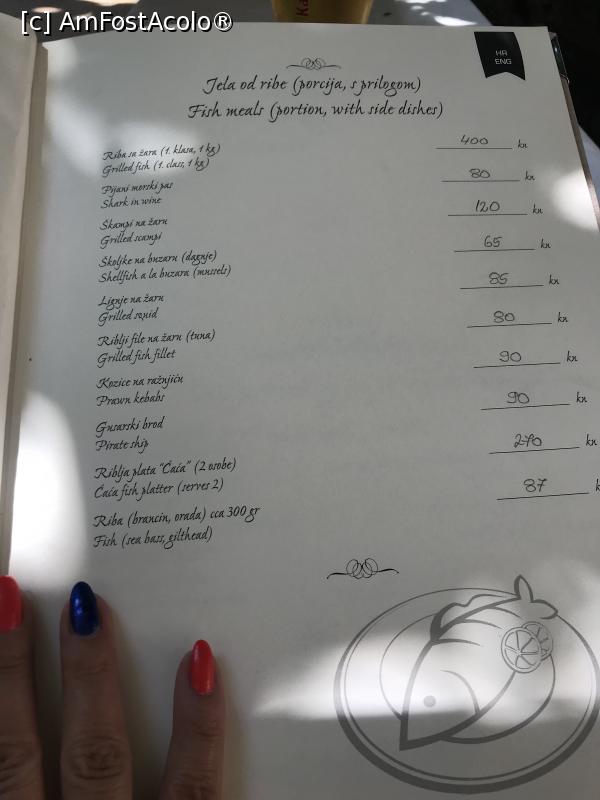 [c] AmFostAcolo®
HR
ENG
Jela od ribe (porcija, s prilogom)
Fish meals (portion, with side dishes)
Riba sa žara (1. klasa, 1 kg) 400 kn
Grilled fish (1. class, 1 kg)
Pijani morski pas 80 kn
Shark in wine
Škampi na žaru 120 kn
Grilled scampi
Školjke na buzaru (dagnje) 65 kn
Shellfish a la buzara (mussels)
Lignje na žaru 85 kn
Grilled squid
Riblji file na žaru (tuna) 80 kn
Grilled fish fillet
Kozice na ražnjiću 90 kn
Prawn kebabs
Gusarski brod 90 kn
Pirate ship
Riblja plata "Ćaća" (2 osobe) 270 kn
Ćaća fish platter (serves 2)
Riba (brancin, orada) cca 300 gr 87 k
Fish (sea bass, gilthead)